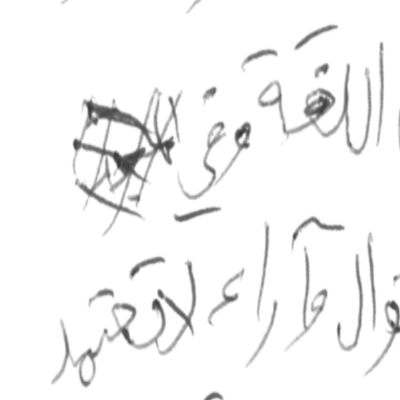 اللغة وفي
وآراء لا تعتمد